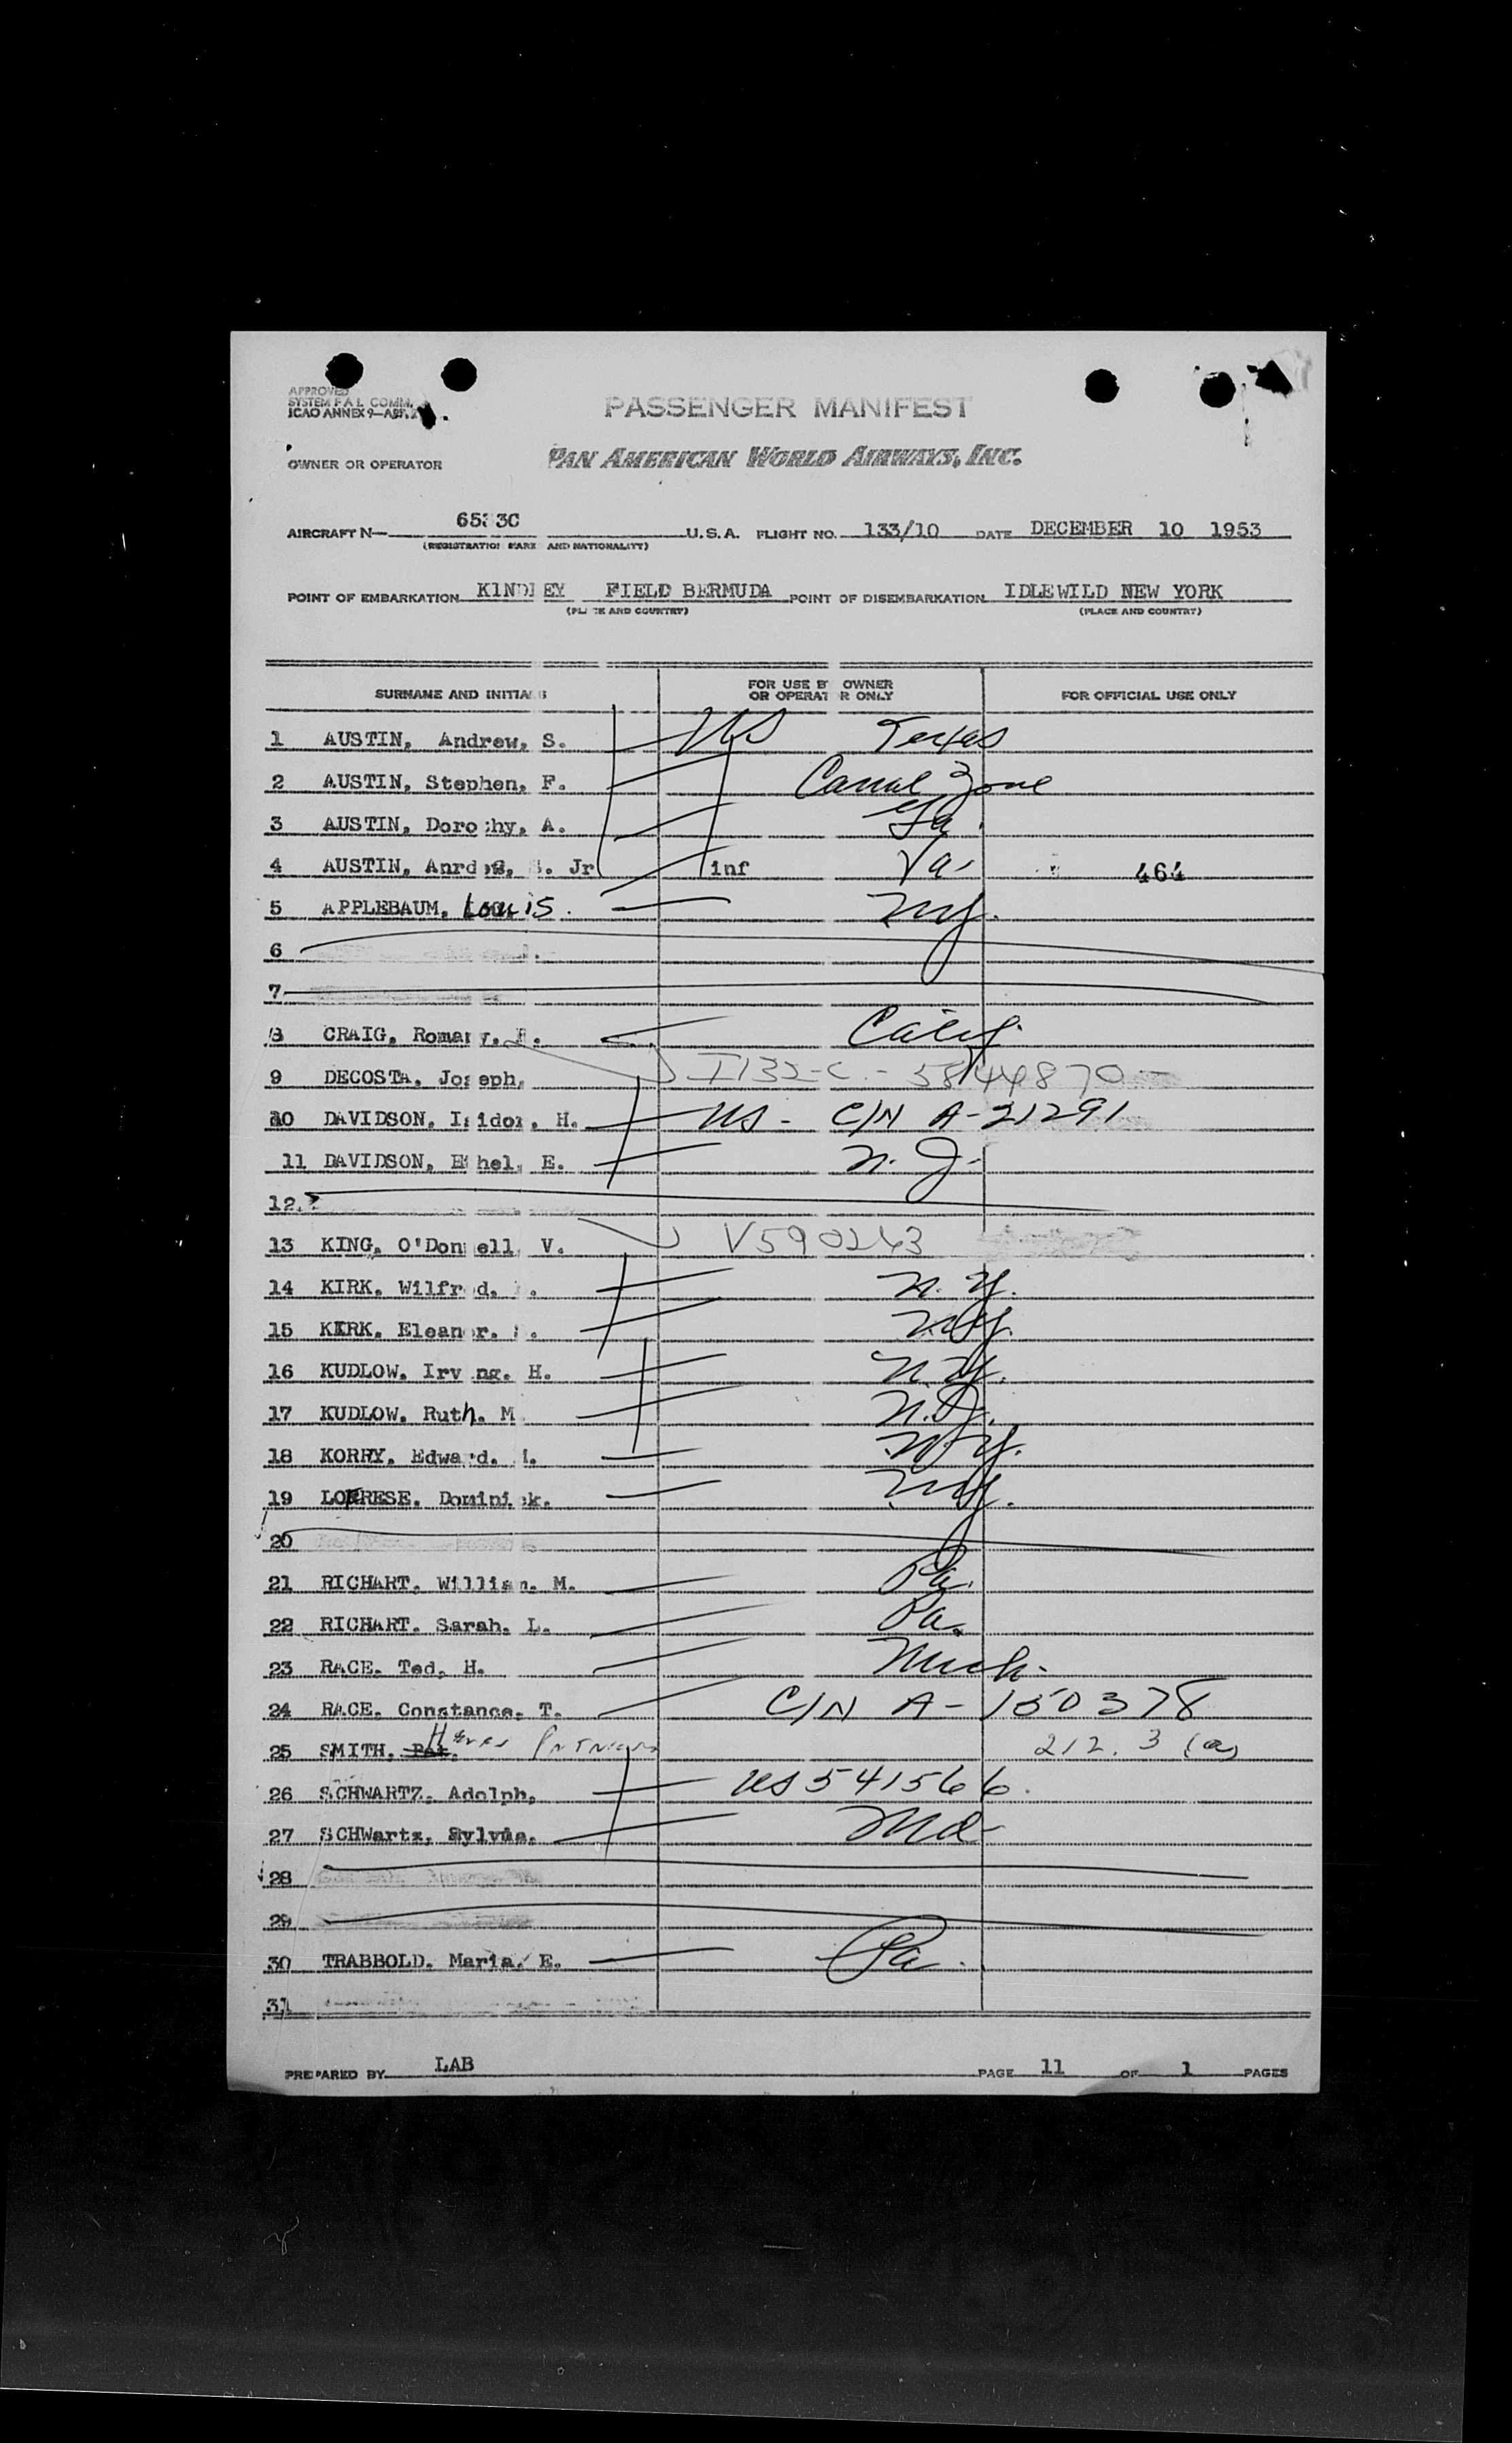 APPROVED
SYSTEM F A L COMM.
ICAO ANNEX 9—
PASSENGER MANIFEST
OWNER OR OPERATOR
PAN AMERICAN WORLD AIRWAYS, INC.
AIRCRAFT N— 3C U.S.A. FLIGHT NO. 133/10 DATE DECEMBER 10 1953
(REGISTRATION MARK AND NATIONALITY)
POINT OF EMBARKATION KINDLEY FIELD BERMUDA POINT OF DISEMBARKATION IDLEWILD NEW YORK
(PLACE AND COUNTRY) (PLACE AND COUNTRY)
SURNAME AND INITIALS FOR USE BY OWNER OR OPERATOR ONLY FOR OFFICIAL USE ONLY
1 AUSTIN, Andrew, S. US Texas
2 AUSTIN, Stephen, F. Canal Zone
3 AUSTIN, Dorothy, A. Ga.
4 AUSTIN, Anrdew, S. Jr inf Va- 464
5 APPLEBAUM, Louis. NY.
6
7
8 CRAIG, Calif.
9 DECOSTA, Joseph, I132-C.- 5844870-
10 DAVIDSON, Isidor, H. US- C/N A-21291
11 DAVIDSON, Ethel, E. N.J.
12
13 KING, O'Donnell, V. V590243
14 KIRK, Wilfred. N.Y.
15 KIRK, Eleanor. NY.
16 KUDLOW, Irving. H. N.Y.
17 KUDLOW, Ruth. M N.J.
18 KORRY, Edward. N.Y.
19 Dominick. NY.
20
21 RICHART, William. M. Pa.
22 RICHART. Sarah. L. Pa.
23 RACE. Ted, H. Mich-
24 RACE. Constance. T. C/N A-150378
25 SMITH, Pat, 212.3 (a)
26 SCHWARTZ, Adolph, US 541566.
27 SCHWartz, Sylvia. Md-
28
29
30 TRABBOLD. Maria. E. Pa.
31
PREPARED BY LAB PAGE 11 OF 1 PAGES